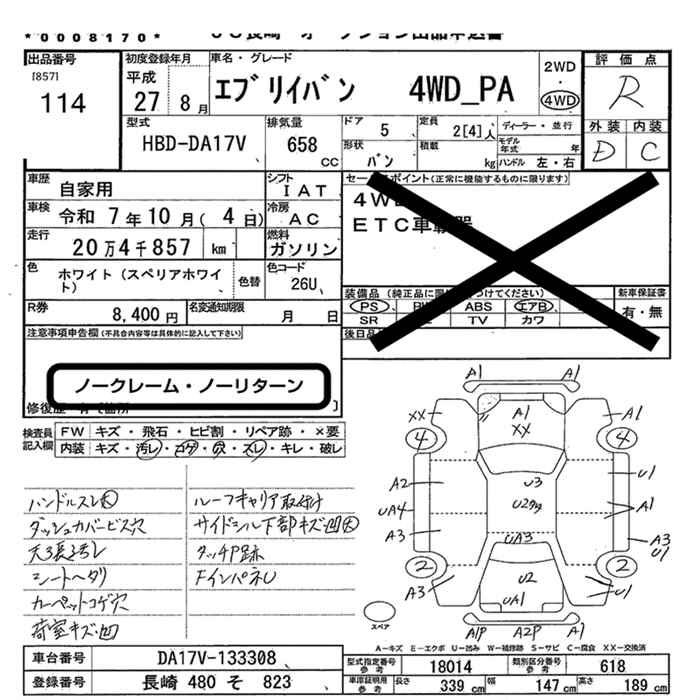 *0008170*
出品番号
[857]
114
初度登録年月
平成
27年 8月
車名・グレード
エブリイバン 4WD_PA
2WD
・
4WD
評価点
R
型式
HBD-DA17V
排気量
658
CC
ドア
5
定員
2[4]人
ディーラー・並行
形状
バン
積載
kg
モデル年式 年
ハンドル 左・右
外装 内装
D C
車歴
自家用
シフト
IAT
セールスポイント(正常に機能するものに限ります)
4W
ETC車載器
車検
令和 7年10月( 4日)
冷房
AC
走行
20万4千857 km
燃料
ガソリン
色
ホワイト(スペリアホワイト)
色替
色コード
26U
装備品
PS
ABS
エアB
SR
TV
カワ
新車保証書
有・無
R券
8,400円
名変通知期限
月 日
後日品
注意事項申告欄(不具合内容等は具体的に記入して下さい)
ノークレーム・ノーリターン
検査員記入欄
FW キズ・飛石・ヒビ割・リペア跡・×要
内装 キズ・汚レ・コゲ・穴・スレ・キレ・破レ
ハンドルスレ大
ダッシュカバービス穴
天張汚レ
シートヘタリ
カーペットコゲ穴
荷室キズ凹
ルーフキャリア取付け
サイドシル下部キズ凹大
タッチP跡
FインパネU
A1
XX
A1
XX
A1
4
4
A2
U3
U1
UA4
A1
A3
UA3
A3
U1
2
2
A3
U2
UA1
U1
A1P A2P A1
スペア
A-キズ E-エクボ U-凹み W-補修跡 S-サビ C-腐食 XX-交換済
車台番号
DA17V-133308
登録番号
長崎 480 そ 823
型式指定番号
参考
18014
類別区分番号
参考
618
車庫証明用
参考
長さ
339 cm
幅
147 cm
高さ
189 cm